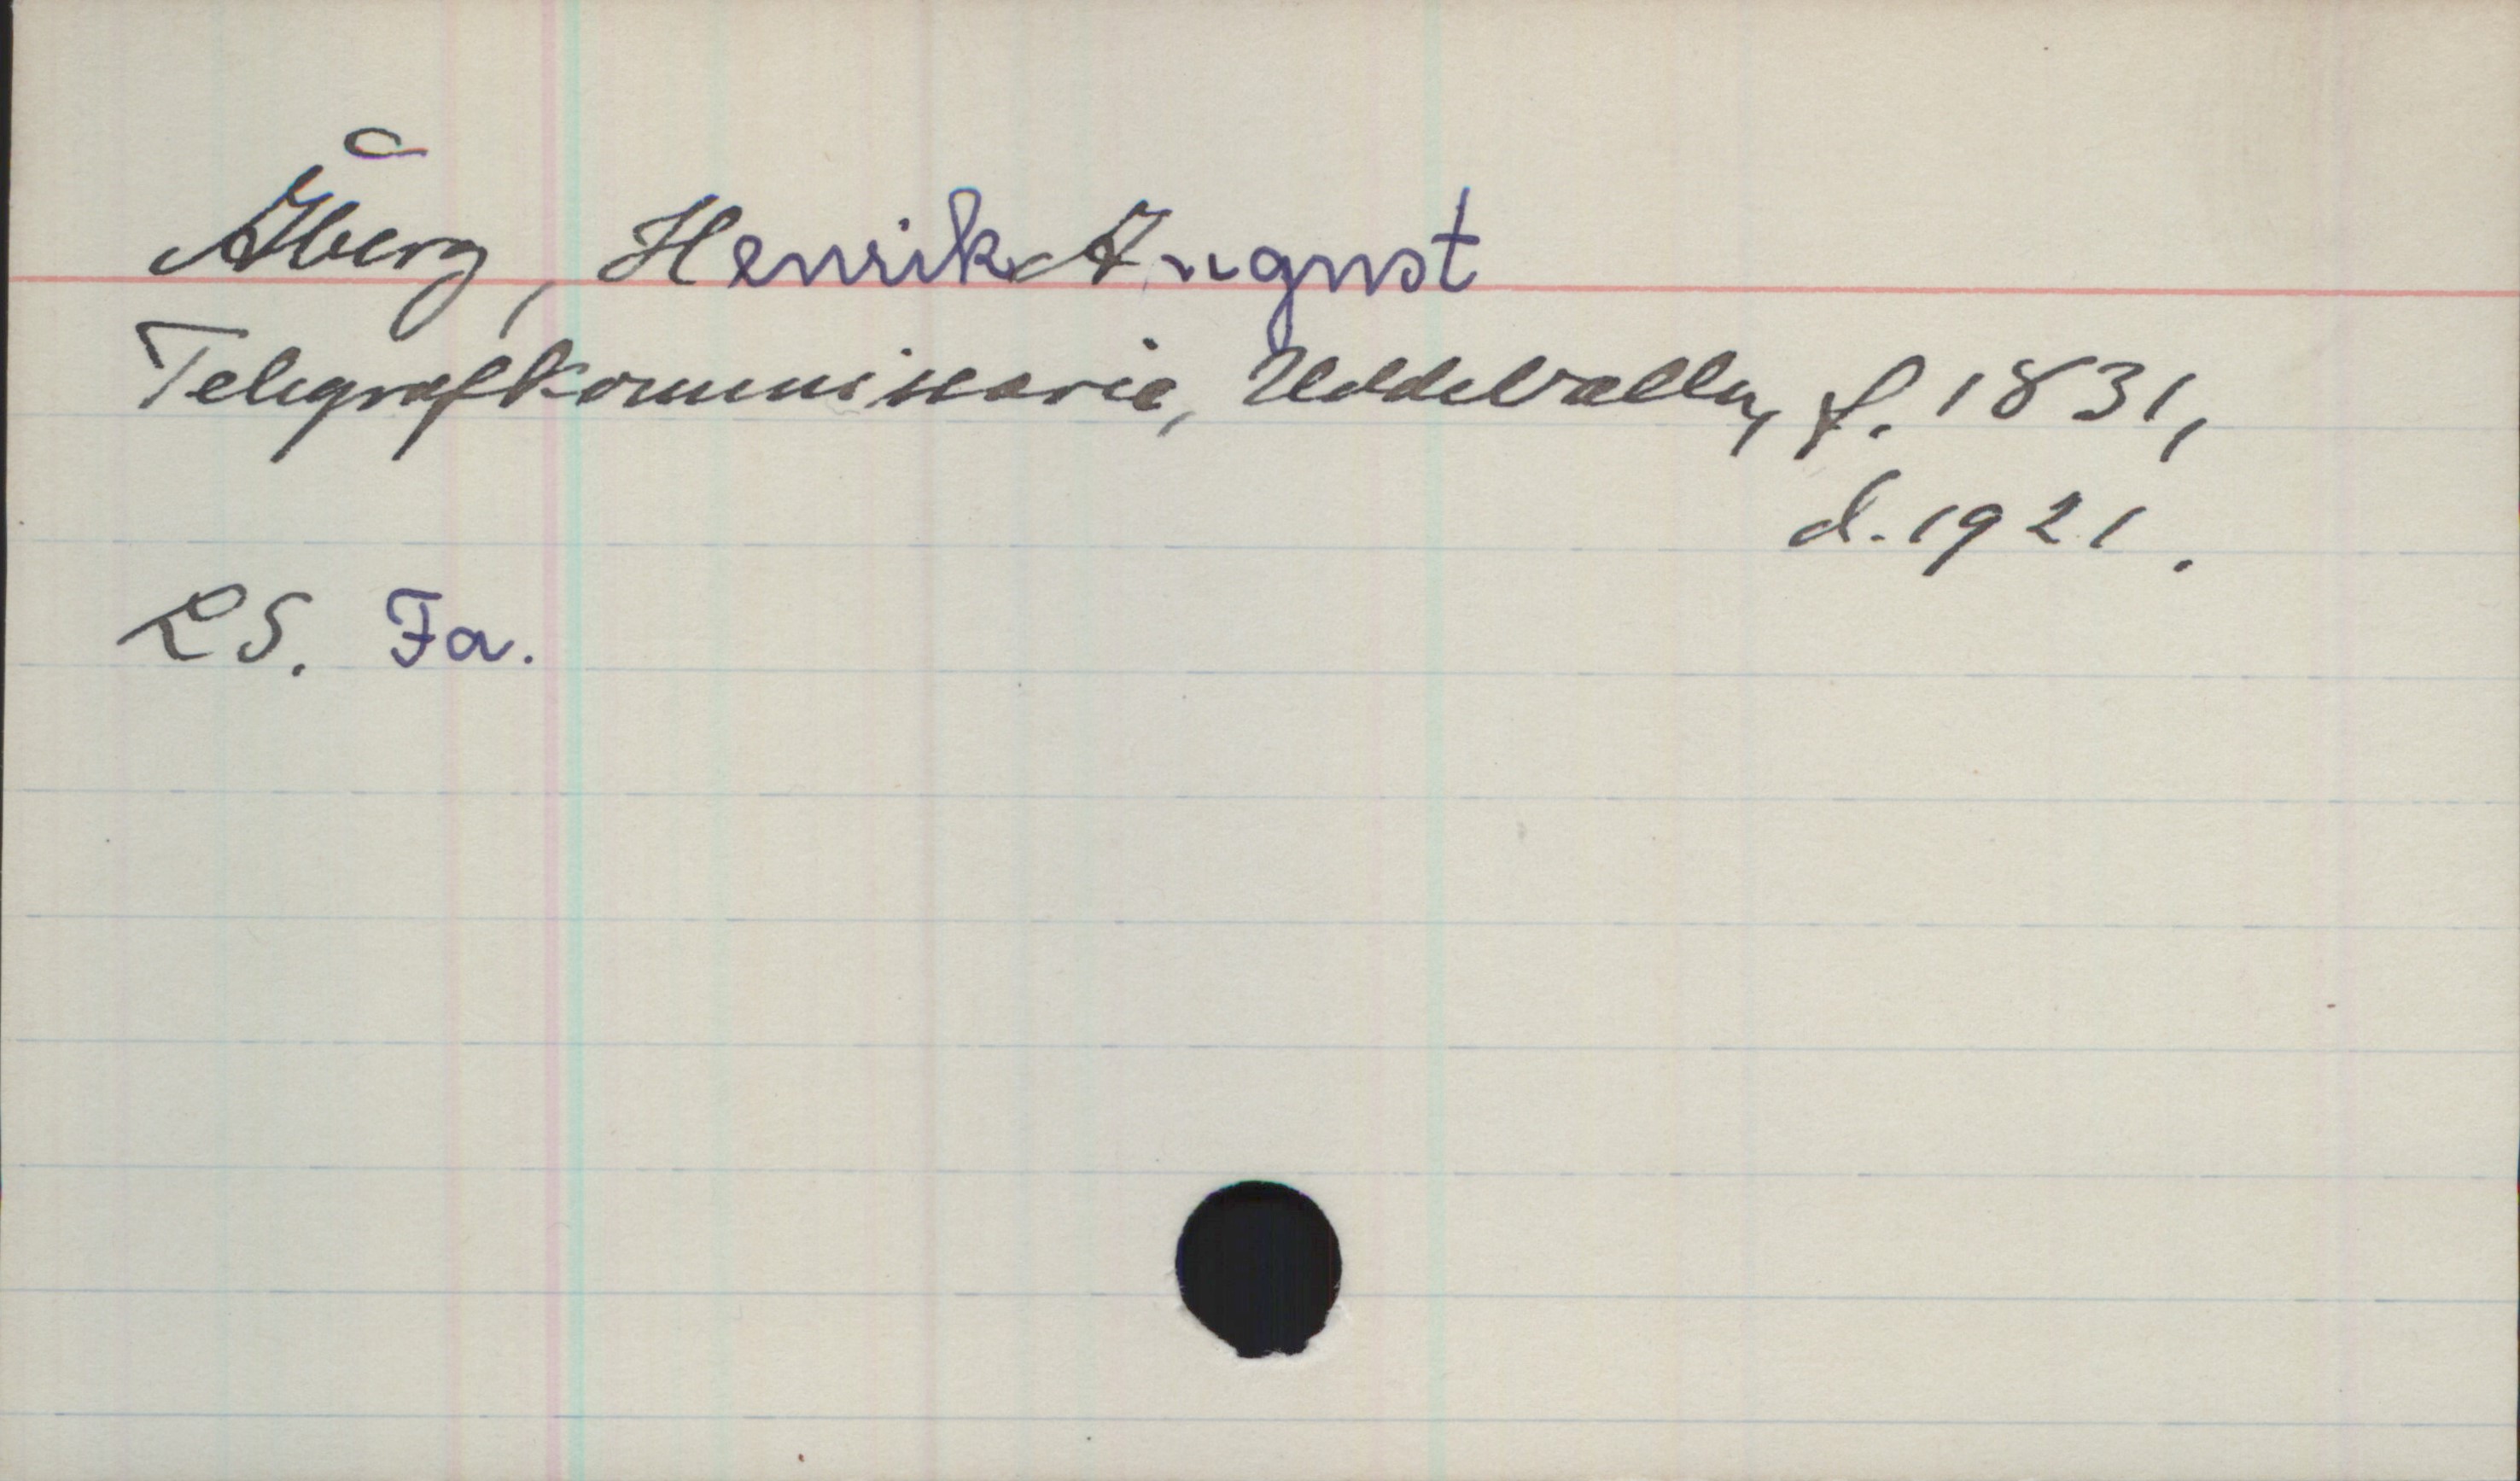 Åberg, Henrik August
Telegrafkommissarie, Uddevalla, f. 1831,
d. 1921.
LS. Fa.